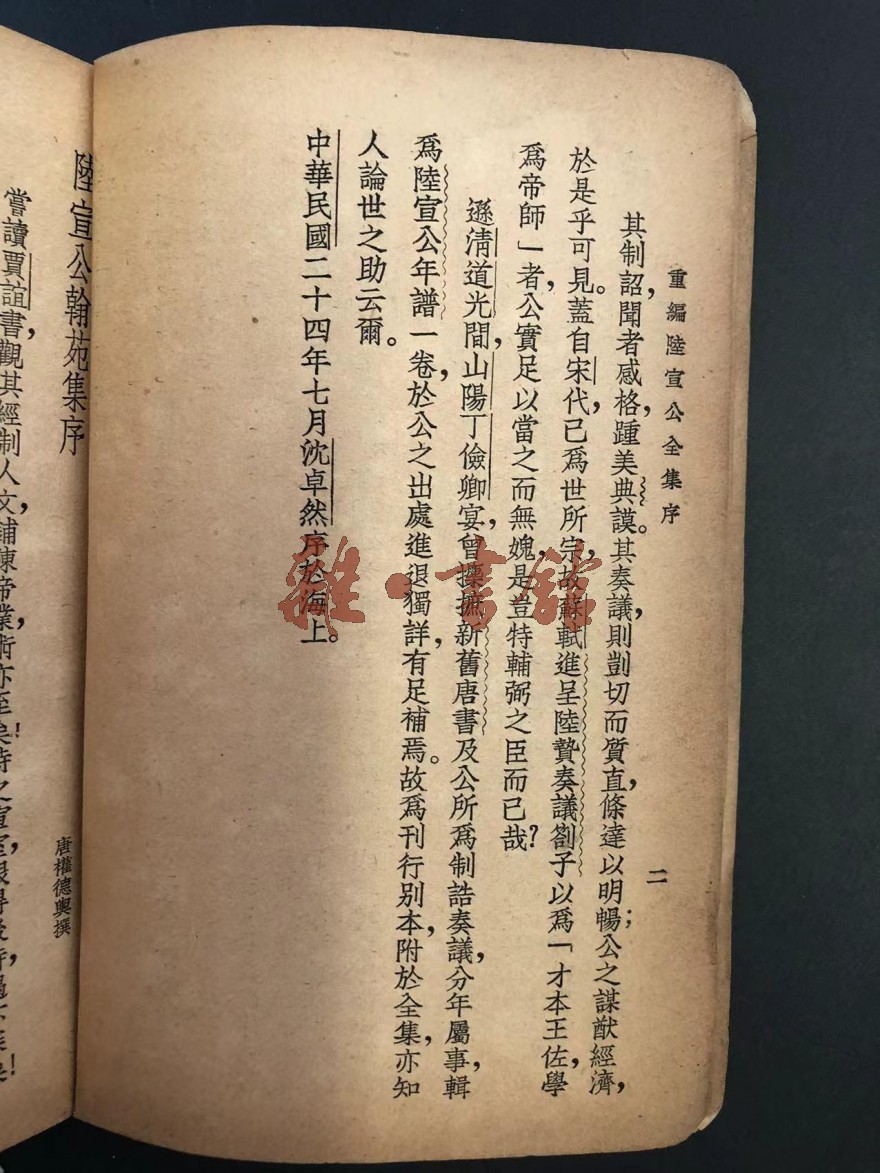 重編陸宣公全集序
二
其制詔，聞者感格，踵美典謨。其奏議，則剴切而質直，條達以明暢；公之謀猷經濟，
於是乎可見。蓋自宋代，已爲世所宗，故蘇軾進呈陸贄奏議劄子以爲「才本王佐，學
爲帝師」者，公實足以當之而無媿，是豈特輔弼之臣而已哉？
遜清道光間，山陽丁儉卿，宴曾攗摭新舊唐書及公所爲制誥奏議，分年屬事，輯
爲陸宣公年譜一卷，於公之出處進退獨詳，有足補焉。故爲刊行别本，附於全集，亦知
人論世之助云爾。
中華民國二十四年七月沈卓然序於海上。
雜·書館
陸宣公翰苑集序
唐權德輿撰
嘗讀賈誼書，觀其經制人文，鋪陳帝業，術亦至矣！